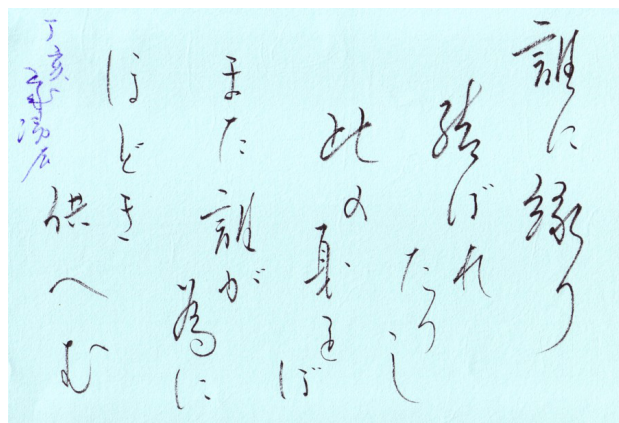 誰に縁り
結ばれ
たりし
此の身をば
また誰が為に
ほどき
供へむ
丁亥